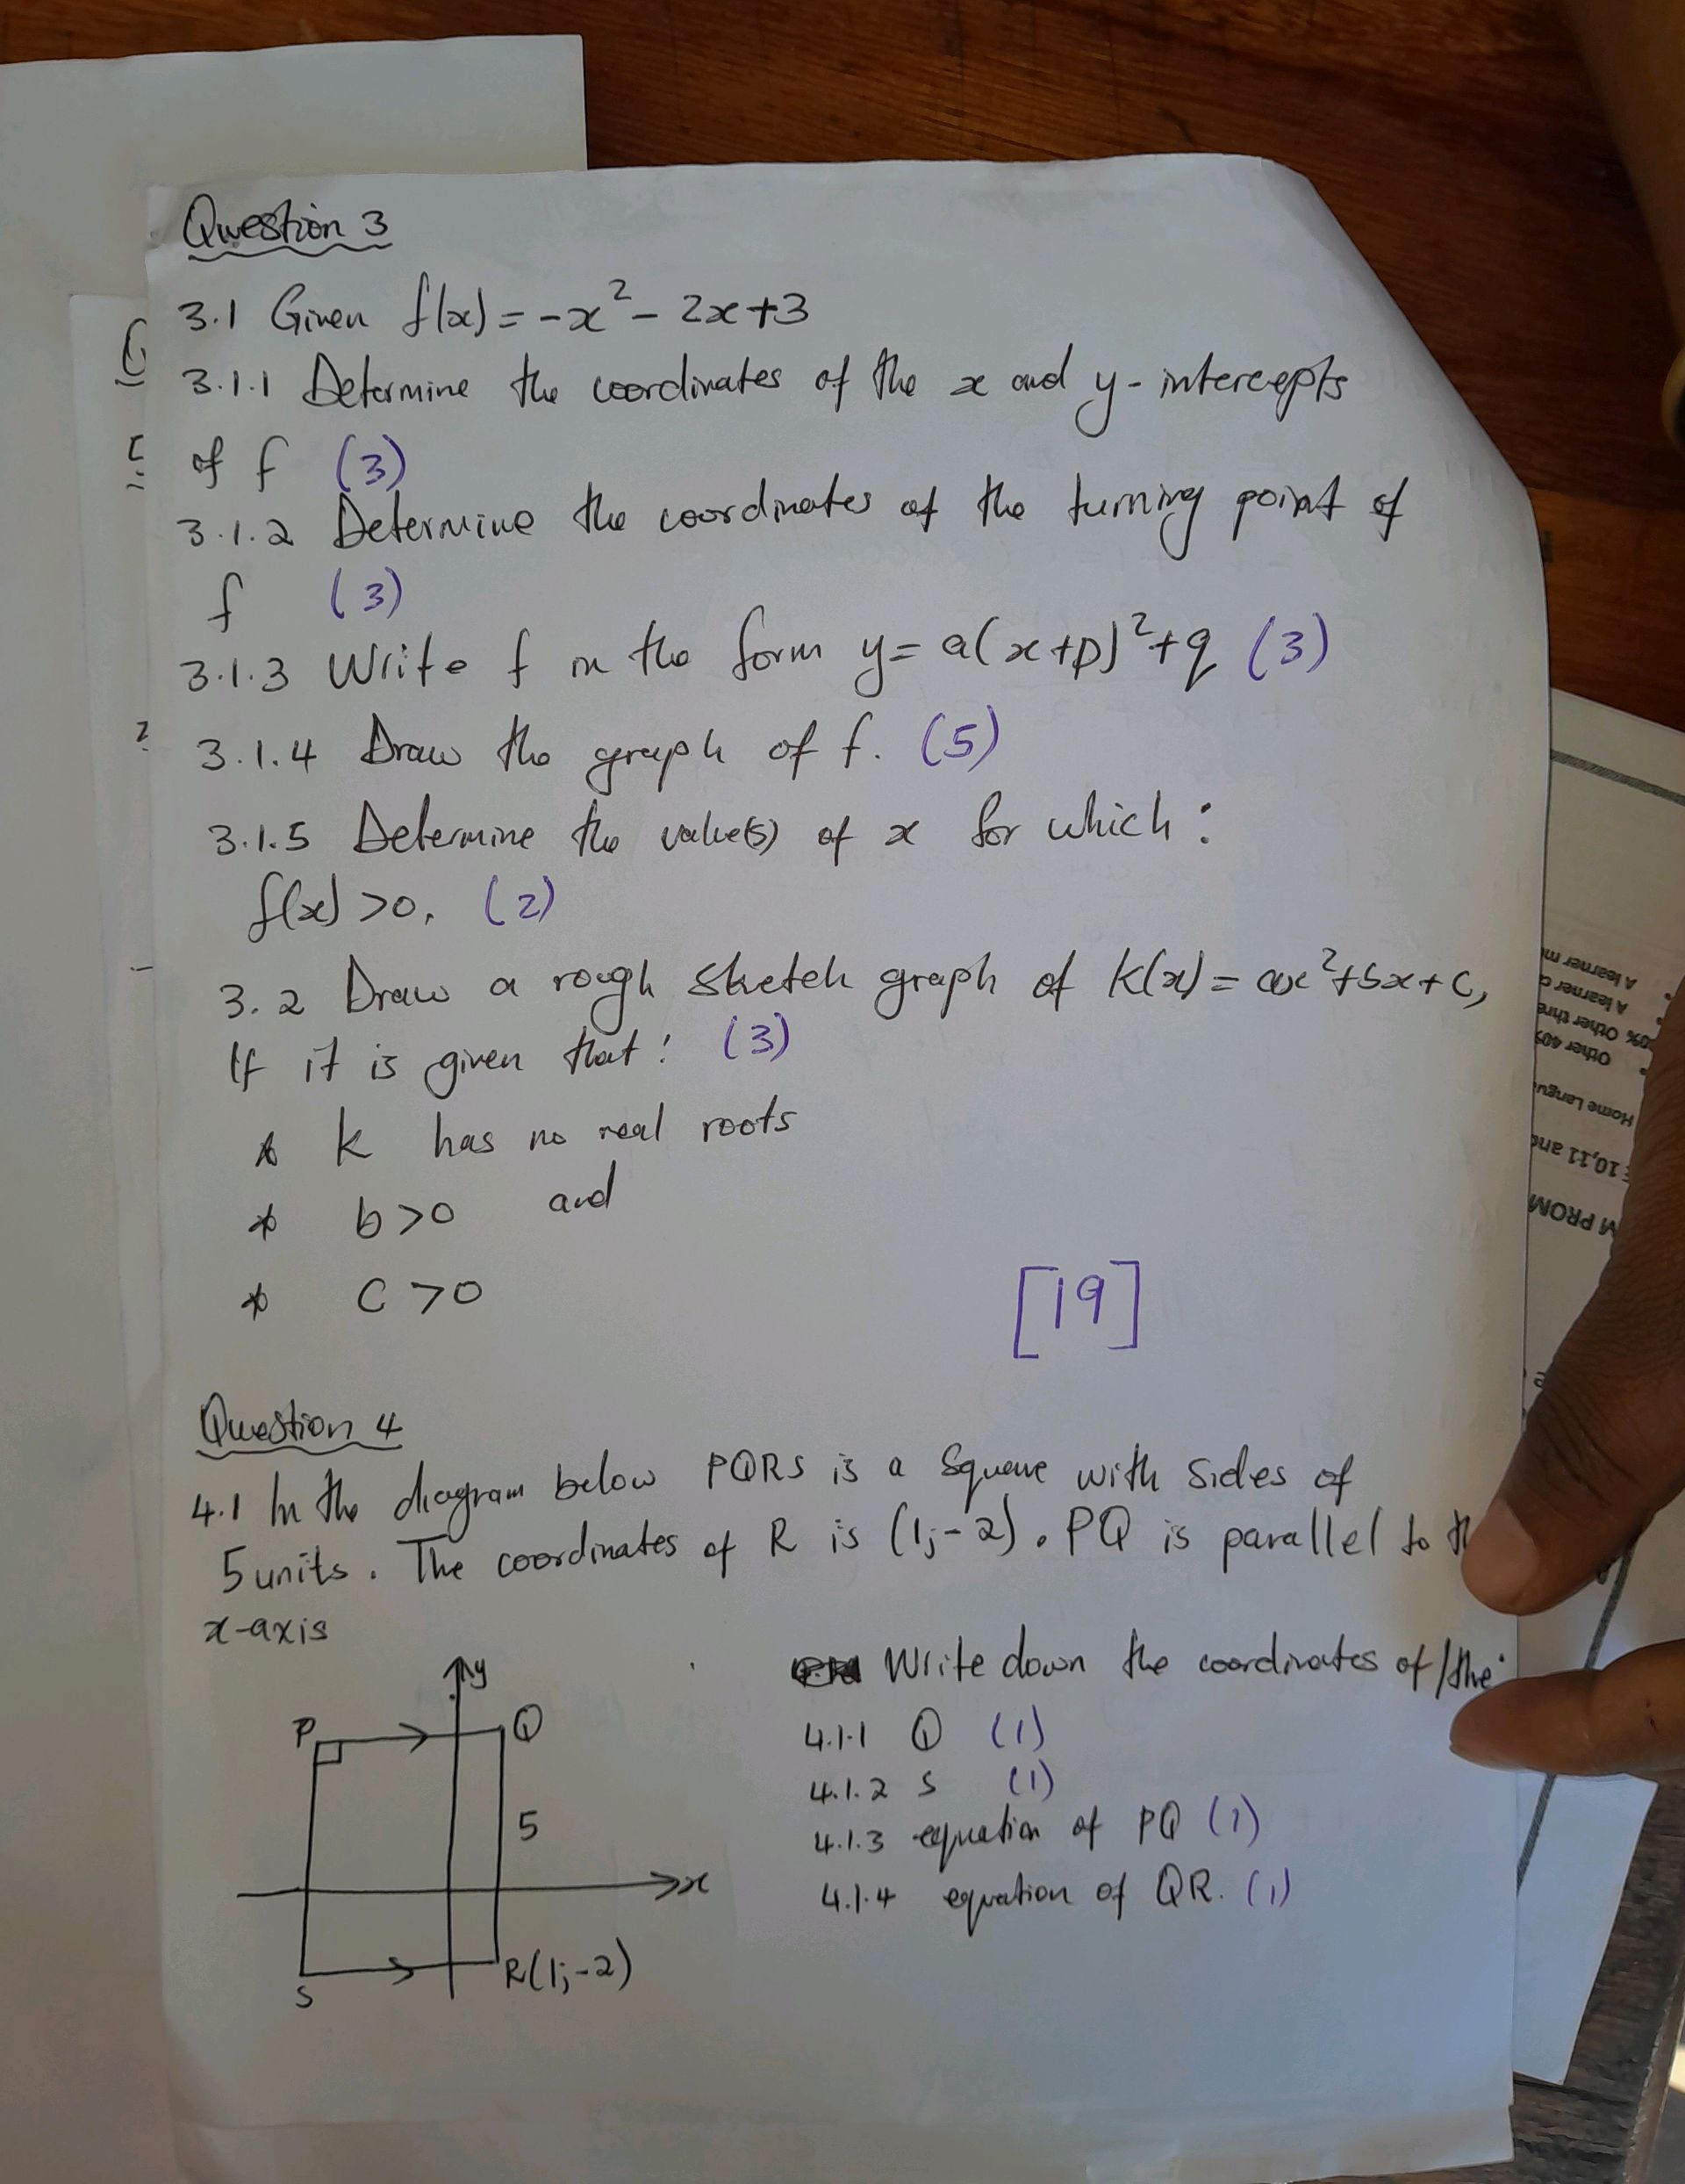 Question 3
3.1 Given f(x) = -x² - 2x+3
3.1.1 Determine the coordinates of the x and y-intercepts
of f (3)
3.1.2 Determine the coordinates of the turning point of
f (3)
3.1.3 Write f in the form y = a(x+p)²+q (3)
3.1.4 Draw the graph of f. (5)
3.1.5 Determine the value(s) of x for which :
f(x) >0. (2)
3.2 Draw a rough sketch graph of k(x) = ax²+bx+c,
If it is given that : (3)
* k has no real roots
* b>0 and
* c >0
[19]
Question 4
4.1 In the diagram below PQRS is a square with sides of
5 units. The coordinates of R is (1;-2). PQ is parallel to
x-axis
Write down the coordinates of/the:
4.1.1 Q (1)
4.1.2 S (1)
4.1.3 equation of PQ (1)
4.1.4 equation of QR. (1)
y
P
Q
5
x
S
R(1;-2)
A learner
A learner
Other thre
Other 40%
Home Langu
10,11 and
M PROM